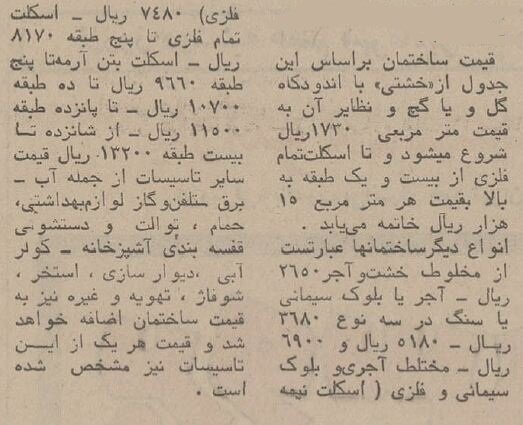 قیمت ساختمان براساس این
جدول از«خشتی» با اندودکاه
گل و یا گچ و نظایر آن به
قیمت متر مربعی ۱۷۳۰ریال
شروع میشود و تا اسکلت‌تمام
فلزی از بیست و یک طبقه به
بالا بقیمت هر متر مربع ۱۵
هزار ریال خاتمه می‌یابد .
انواع دیگرساختمانها عبارتست
از مخلوط خشت‌وآجر۲۶۵۰
ریال ـ آجر یا بلوک سیمانی
یا سنگ در سه نوع ۳۶۸۰
ریال ـ ۵۱۸۰ ریال و ۶۹۰۰
ریال ـ مختلط آجری‌و بلوک
سیمانی و فلزی ( اسکلت نیمه
فلزی) ۷۴۸۰ ریال ـ اسکلت
تمام فلزی تا پنج طبقه ۸۱۷۰
ریال ـ اسکلت بتن آرمه‌تا پنج
طبقه ۹۶۶۰ ریال تا ده طبقه
۱۰۷۰۰ ریال ـ تا پانزده طبقه
۱۱۵۰۰ ریال ـ از شانزده تا
بیست طبقه ۱۳۲۰۰ ریال قیمت
سایر تاسیسات از جمله آب ـ
برق ـتلفن‌وگاز لوازم‌بهداشتی،
حمام ، توالت و دستشوئی
قفسه بندی آشپزخانه ـ کولر
آبی ،دیوار سازی ، استخر ،
شوفاژ ، تهویه و غیره نیز به
قیمت ساختمان اضافه خواهد
شد و قیمت هر یک از ایــن
تاسیسات نیز مشخص شده
است .